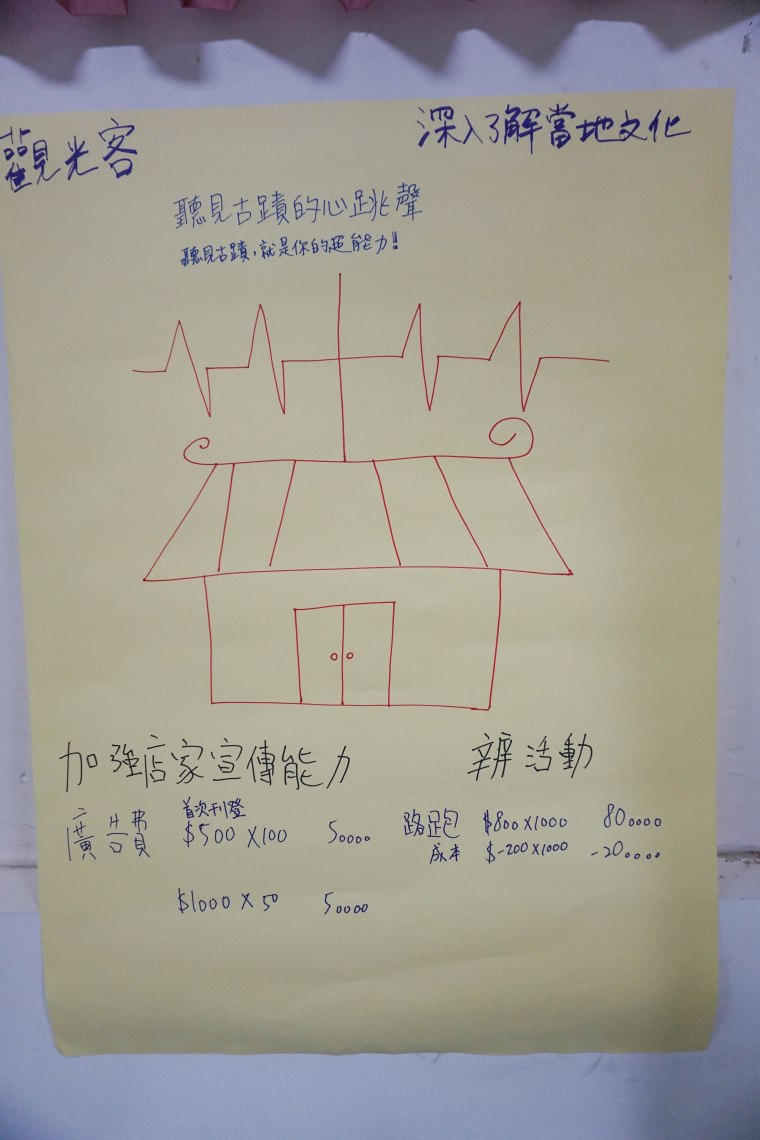 觀光客
深入了解當地文化
聽見古蹟的心跳聲
聽見古蹟，就是你的超能力!!
加強店家宣傳能力
廣告費
首次刊登
$500 X 100 50000
$1000 X 50 50000
辦活動
路跑 $800 X 1000 800000
成本 $-200 X 1000 -200000